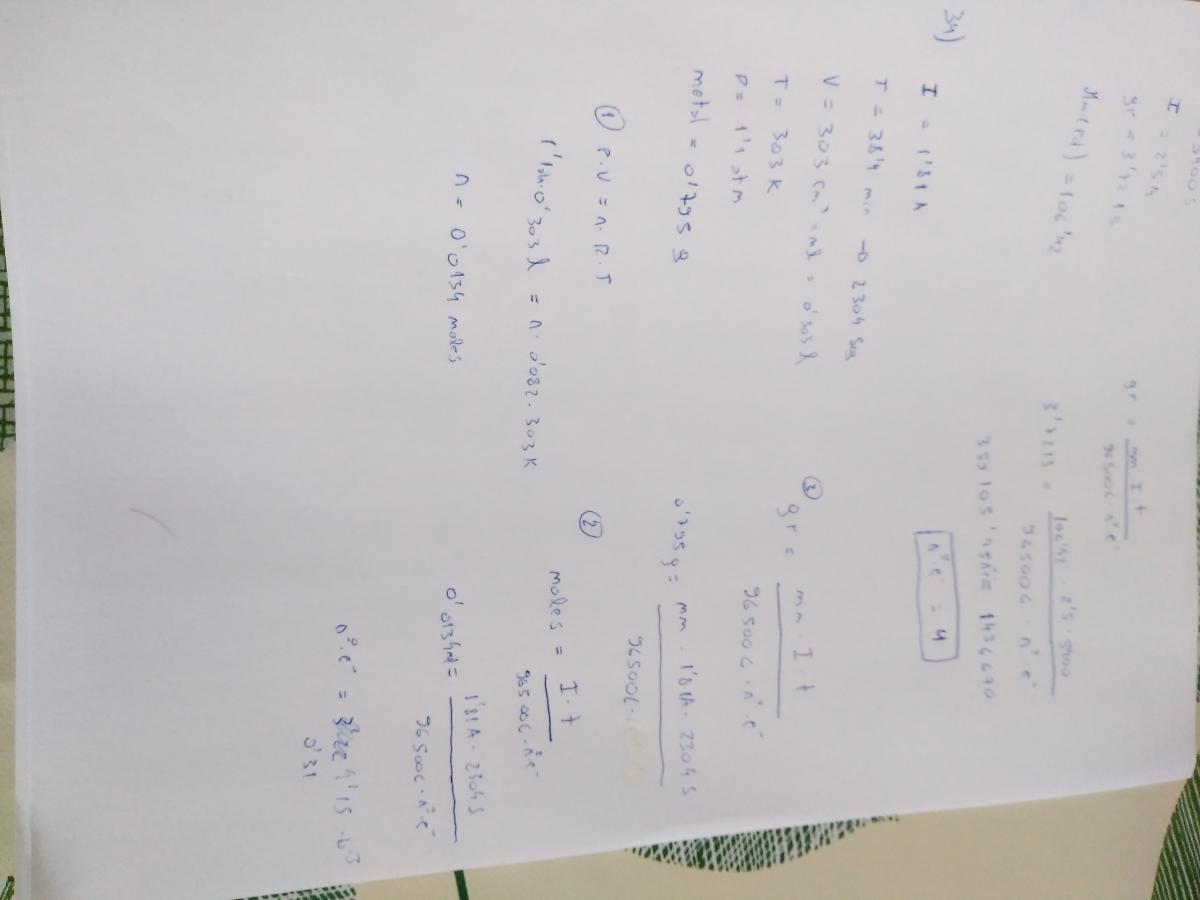 I = 2'5 A
gr = 3'7213
Mm (Pd) = 106'42
gr = mm I t
96500C · nº e⁻
3'7213 = 106'42 · 2'5 · 5400
96500C · nº e⁻
359105'45 nºe = 1436670
nº e⁻ = 4
34)
I = 1'81 A
T = 38'4 min → 2304 seg
V = 303 cm³ = ml = 0'303 l
T = 303 K
P = 1'1 atm
metal = 0'795 g
① P·V = n·R·T
1'1atm·0'303 l = n·0'082·303K
n = 0'0134 moles
③
gr = mm · I · t
96500C · nº e⁻
0'795 g = mm · 1'81A · 2304 s
96500C ·
②
moles = I · t
96500C · nº e⁻
0'0134 = 1'81A · 2304 s
96500C · nº e⁻
nº·e⁻ =
0'31